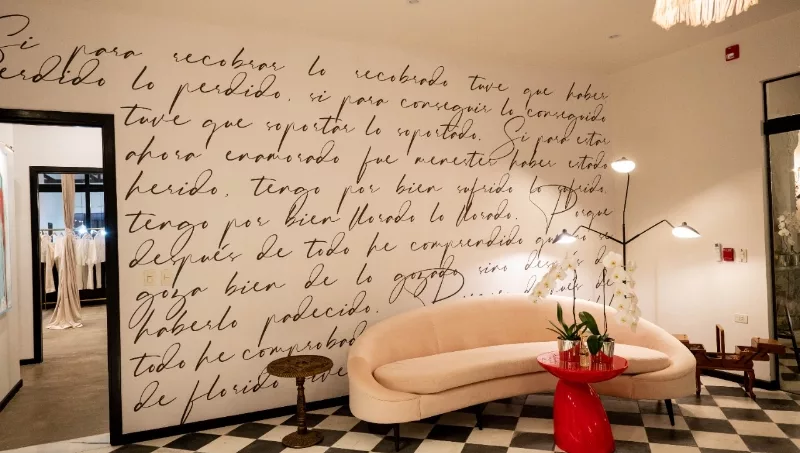 Si para recobrar lo recobrado tuve que haber
perdido lo perdido, si para conseguir lo conseguido
tuve que soportar lo soportado, Si para estar
ahora enamorado fue menester haber estado
herido, tengo por bien sufrido lo sufrido,
tengo por bien llorado lo llorado, Porque
después de todo he comprendido que no se
goza bien de lo gozado sino después de
haberlo padecido. Porque después de
todo he comprobado
de florido vive